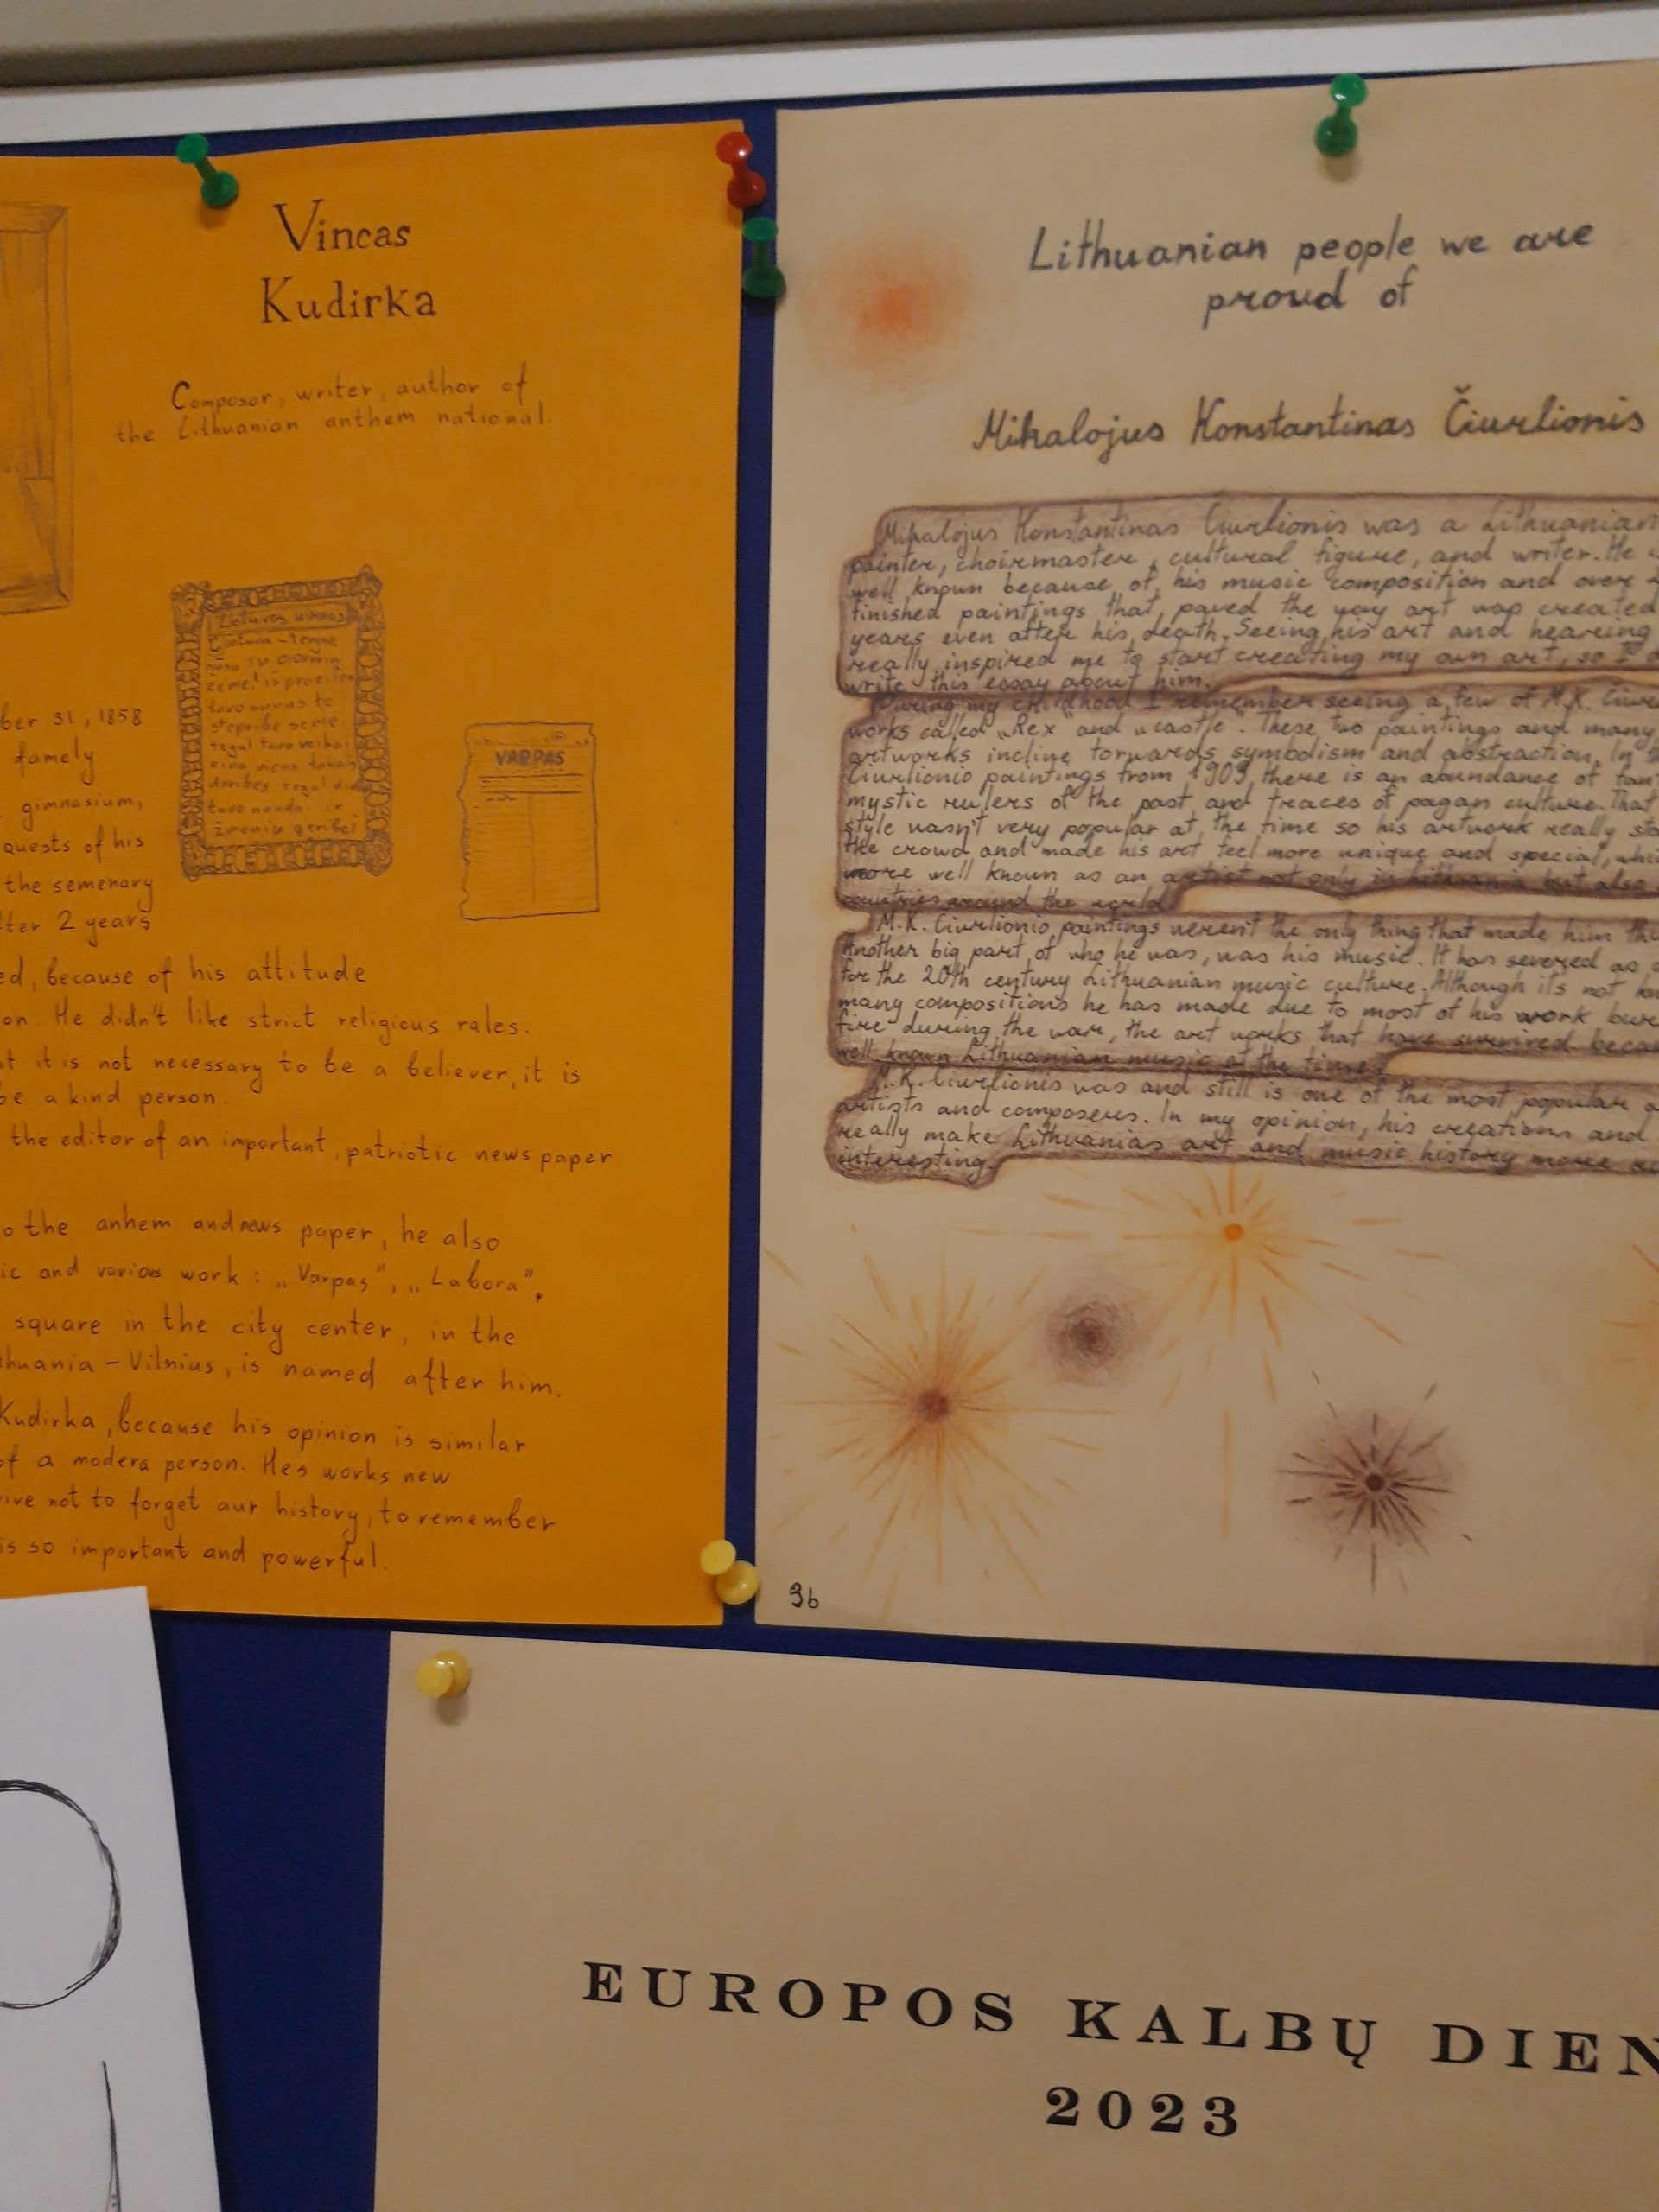 Vincas
Kudirka
Composor, writer, author of
the Lithuanian anthem national.
Lietuvos himnas
VARPAS
ber 31, 1858
famely
gimnasium,
quests of his
the semenary
fter 2 years
ed, because of his attitude
on. He didn't like strict religious rales.
t it is not necessary to be a believer, it is
be a kind person.
the editor of an important, patriotic news paper
o the anhem and news paper, he also
ic and various work: „Varpas", „Labora".
square in the city center, in the
thuania - Vilnius, is named after him.
Kudirka, because his opinion is similar
of a modern person. Hes works new
ive not to forget aur history, to remember
is so important and powerful.
Lithuanian people we are
proud of
Mikalojus Konstantinas Čiurlionis
Mikalojus Konstantinas Čiurlionis was a Lithuanian
painter, choirmaster, cultural figure, and writer. He
well known because of his music composition and over
finished paintings that paved the way art was created
years even after his death. Seeing his art and hearing
really inspired me to start creating my own art, so I
write this essay about him.
During my childhood I remember seeing a few of M.K. Čiurl
works called „Rex" and „castle". These two paintings and many
artworks incline torwards symbolism and abstraction. In
Čiurlionio paintings from 1909, there is an abundance of fant
mystic rulers of the past and traces of pagan culture. That
style wasn't very popular at the time so his artwork really sto
the crowd and made his art feel more unique and special, whi
more well known as an artist not only in Lithuania but also
countries around the world.
M.K. Čiurlionio paintings weren't the only thing that made him
Another big part of who he was, was his music. It has severed as
for the 20th century Lithuanian music culture. Although its not
many compositions he has made due to most of his work bur
fire during the war, the art works that have survived becam
well known Lithuanian music at the time.
M.K. Čiurlionis was and still is one of the most popular
artists and composers. In my opinion, his creations and
really make Lithuanias art and music history more
interesting.
3b
EUROPOS KALBŲ DIEN
2023